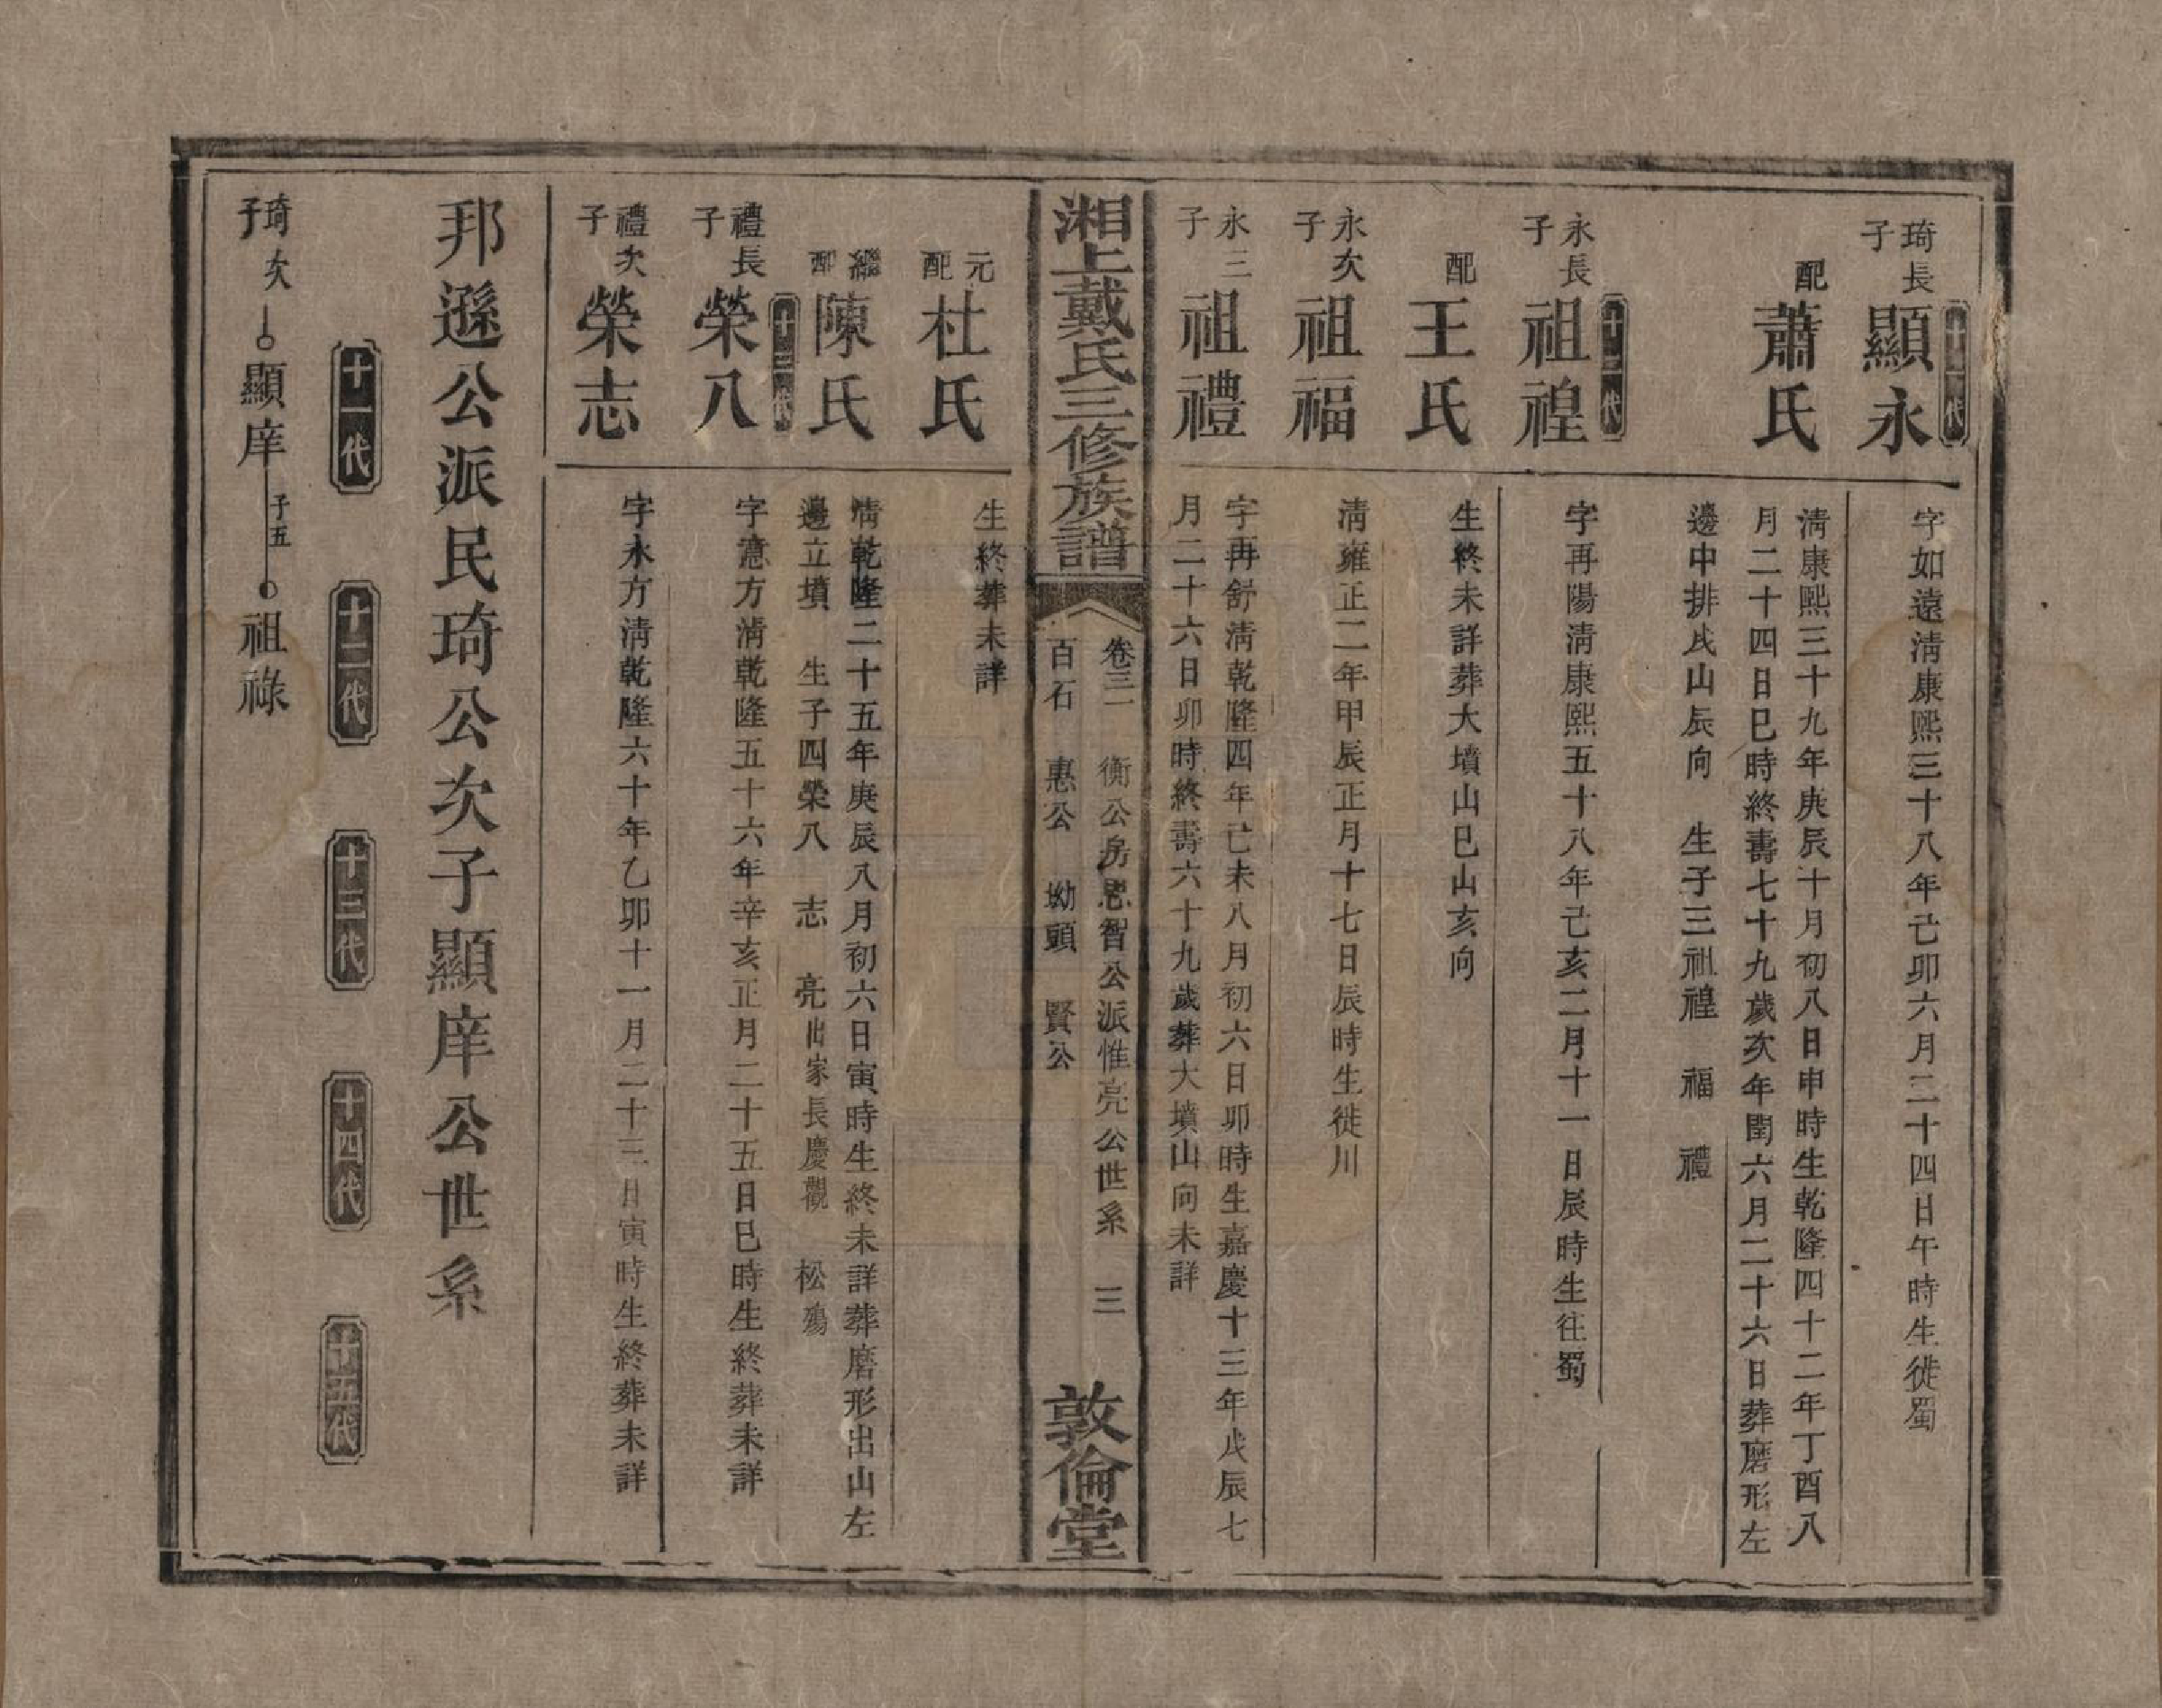 十一代
琦長子顯永
字如遠淸康熙三十八年己卯六月二十四日午時生徙蜀
配蕭氏
淸康熙三十九年庚辰十月初八日申時生乾隆四十二年丁酉八
月二十四日巳時終壽七十九歲次年閏六月二十六日葬磨形左
邊中排戌山辰向 生子三祖禋 福 禮
十二代
永長子祖禋
字再陽淸康熙五十八年己亥二月十一日辰時生往蜀
配王氏
生終未詳葬大墳山巳山亥向
永次子祖福
淸雍正二年甲辰正月十七日辰時生徙川
永三子祖禮
字再舒淸乾隆四年己未八月初六日卯時生嘉慶十三年戊辰七
月二十六日卯時終壽六十九歲葬大墳山向未詳
湘上戴氏三修族譜
卷三 衡公房思智公派惟亮公世系 三
百石 惠公 坳頭 賢公
敦倫堂
元配杜氏
生終葬未詳
繼配陳氏
淸乾隆二十五年庚辰八月初六日寅時生終未詳葬磨形出山左
邊立墳 生子四榮八 志 亮出家長慶觀 松殤
十三代
禮長子榮八
字憲方淸乾隆五十六年辛亥正月二十五日巳時生終葬未詳
禮次子榮志
字永方淸乾隆六十年乙卯十一月二十三日寅時生終葬未詳
邦遜公派民琦公次子顯庠公世系
十一代 十二代 十三代 十四代 十五代
琦次子 顯庠 子五 祖祿